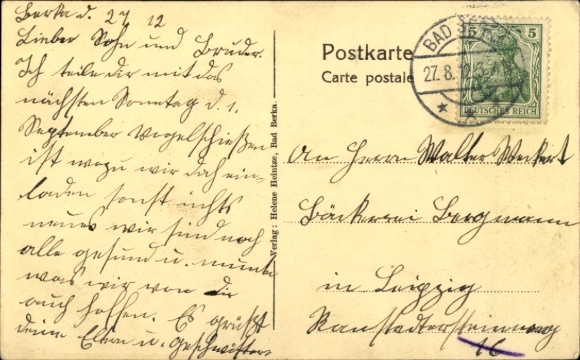 Berka d. 27 12
Lieber Sohn und Bruder.
Ich teile dir mit das
nächsten Sonntag d. 1.
September Vogelschießen
ist wozu wir dich ein-
laden sonst nichts
neues wir sind noch
alle gesund u. munter
was wir von dir
auch hoffen. Es grüßt
deine Eltern u. Geschwister
Verlag: Helene Heintze, Bad Berka.
Postkarte
Carte postale
BAD
27.8.12
5
DEUTSCHES REICH
An Herrn Walter Weikert
Bäckerei Bergmann
in Leipzig
Ranstädtersteinweg
16